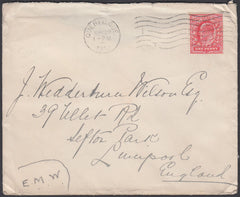 J. Wedderburn Wilson Esq.
39 Ullet Rd
Sefton Park
Liverpool
England
E.M.W.